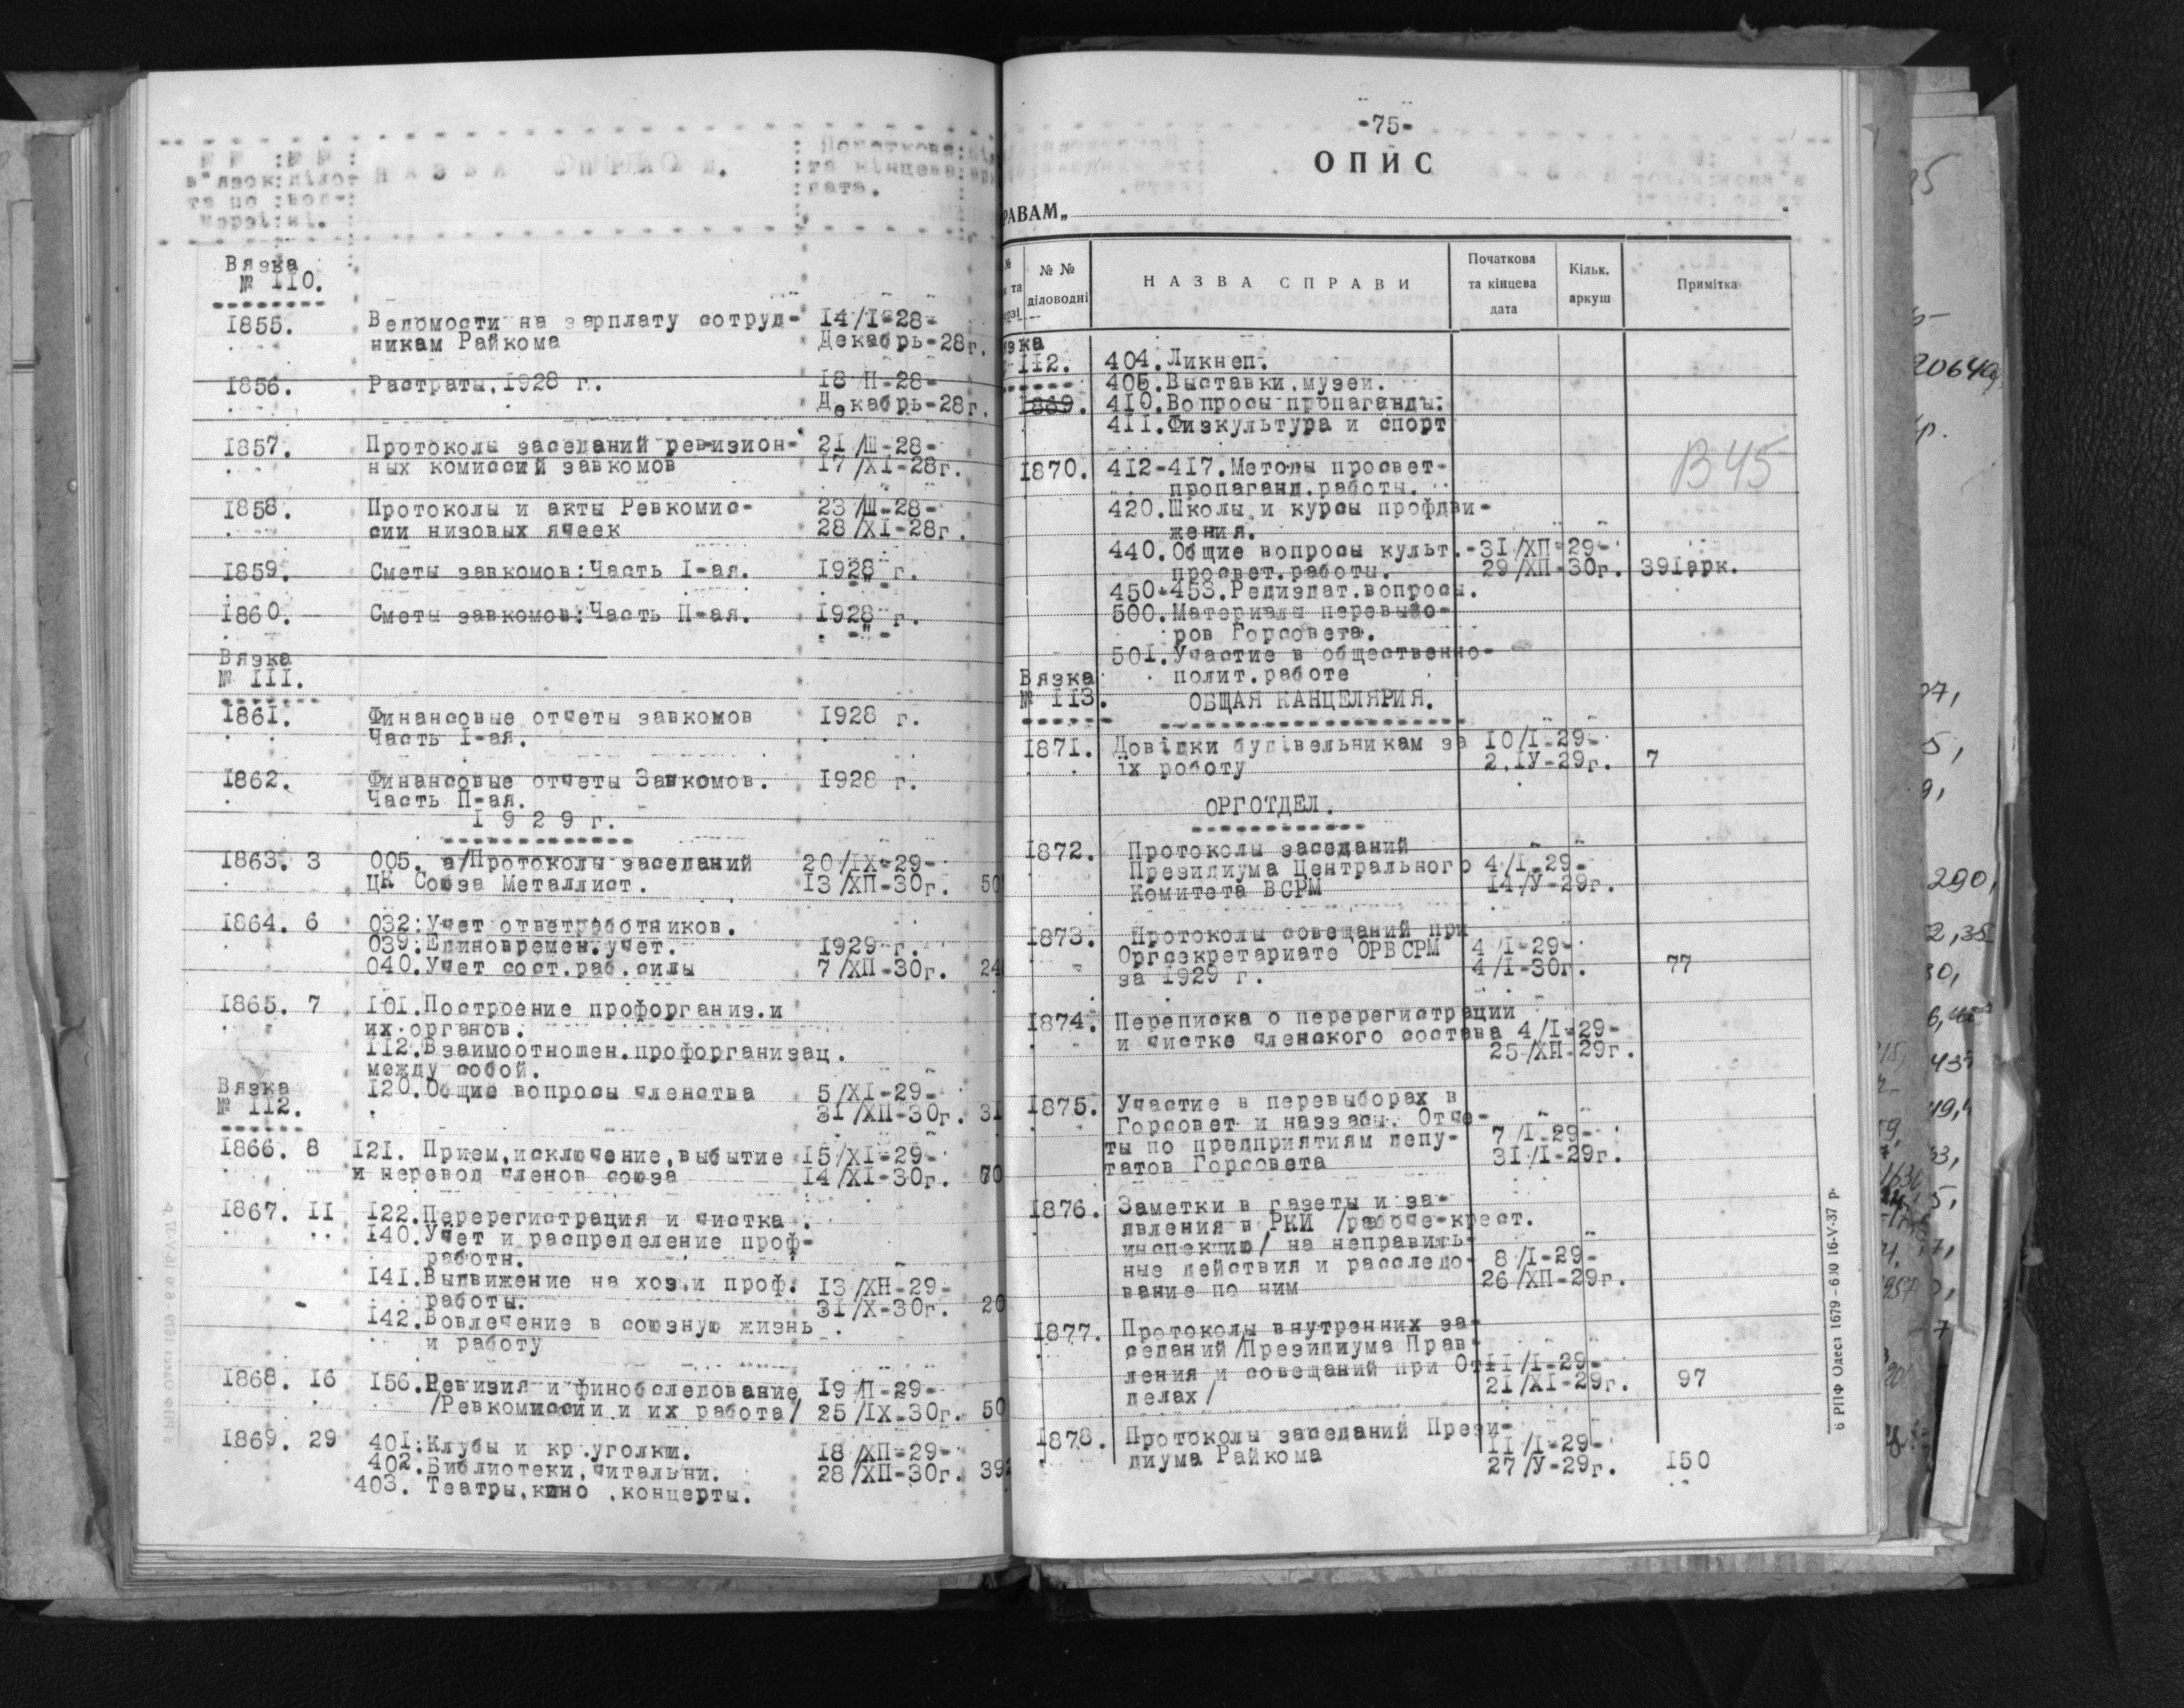 Н А З В А
дата.
Вязка
№ 110.
1855. Ведомости на зарплату сотруд- 14/I-28-
никам Райкома Декабрь-28г.
1856. Растраты,1928 г. 18/П-28-
Декабрь-28г.
1857. Протоколы заседаний ревизион- 21/Ш-28-
ных комиссий завкомов 17/XI-28г.
1858. Протоколы и акты Ревкомис- 23/Ш-28-
сии низовых ячеек 28/XI-28г.
1859. Сметы завкомов:Часть I-ая. 1928 г.
-"-
1860. Сметы завкомов:Часть П-ая. 1928 г.
-"-
Вязка
№ III.
1861. Финансовые отчеты завкомов 1928 г.
Часть I-ая.
1862. Финансовые отчеты Завкомов. 1928 г.
Часть П-ая.
I 9 2 9 г.
1863. 3 005. а/Протоколы заседаний 20/IX-29-
ЦК Союза Металлист. 13/ХП-30г. 50
1864. 6 032:Учет ответработников.
039.Единовремен.учет. 1929 г.
040.Учет сост.раб.силы 7/ХП-30г. 24
1865. 7 101.Построение профорганиз.и
их органов.
112.Взаимоотношен.профорганизац.
между собой.
Вязка 120.Общие вопросы членства 5/XI-29-
№ 112. 31/ХП-30г. 31
1866. 8 121. Прием,исключение,выбытие 15/XI-29-
и перевод членов союза 14/XI-30г. 70
1867. II 122.Перерегистрация и чистка.
140.Учет и распределение проф-
работн.
141.Выдвижение на хоз.и проф. 13/ХН-29-
работы. 31/X-30г. 20
142.Вовлечение в союзную жизнь
и работу
1868. 16 156.Ревизия и финобследование 19/П-29-
/Ревкомиссии и их работа/ 25/IX-30г. 50
1869. 29 401.Клубы и кр.уголки. 18/ХП-29-
402.Библиотеки,читальни. 28/ХП-30г. 39
403. Театры,кино ,концерты.
-75-
ОПИС
РАВАМ„
№ № діловодні
НАЗВА СПРАВИ
Початкова та кінцева дата
Кільк. аркуш
Примітка
112. 404.Ликнеп.
405.Выставки,музеи.
1869. 410.Вопросы пропаганды.
411.Физкультура и спорт
1870. 412-417.Методы просвет-
пропаганд.работы.
В45
420.Школы и курсы профдви-
жения.
440.Общие вопросы культ.-31/ХП-29-
просвет.работы. 29/ХП-30г. 391арк.
450-453.Редиздат.вопросы.
500.Материалы перевыбо-
ров Горсовета.
501.Участие в общественно-
Вязка полит.работе
№ 113. ОБЩАЯ КАНЦЕЛЯРИЯ.
1871. Довідки будівельникам за 10/I-29-
їх роботу 2.IУ-29г. 7
ОРГОТДЕЛ.
1872. Протоколы заседаний
Президиума Центрального 4/I-29-
Комитета ВСРМ 14/У-29г.
1873. Протоколы совещаний при
Оргсекретариате ОРВСРМ 4/I-29-
за 1929 г. 4/I-30г. 77
1874. Переписка о перерегистрации
и чистке членского состава 4/I-29-
25/ХН-29г.
1875. Участие в перевыборах в
Горсовет и наззасы. Отче-
ты по предприятиям депу- 7/I-29-
татов Горсовета 31/I-29г.
1876. Заметки в газеты и за-
явления в РКИ /рабоче-крест.
инспекцию/ на неправиль-
ные действия и расследо- 8/I-29-
вание по ним 26/ХП-29г.
1877. Протоколы внутренних за-
седаний/Президиума Прав-
ления и совещаний при От-11/I-29-
делах/ 21/XI-29г. 97
1878. Протоколы заседаний Прези-
диума Райкома 11/I-29-
27/У-29г. 150
6 РПФ Одеса 1679 – 6.0 16-V-37 р.